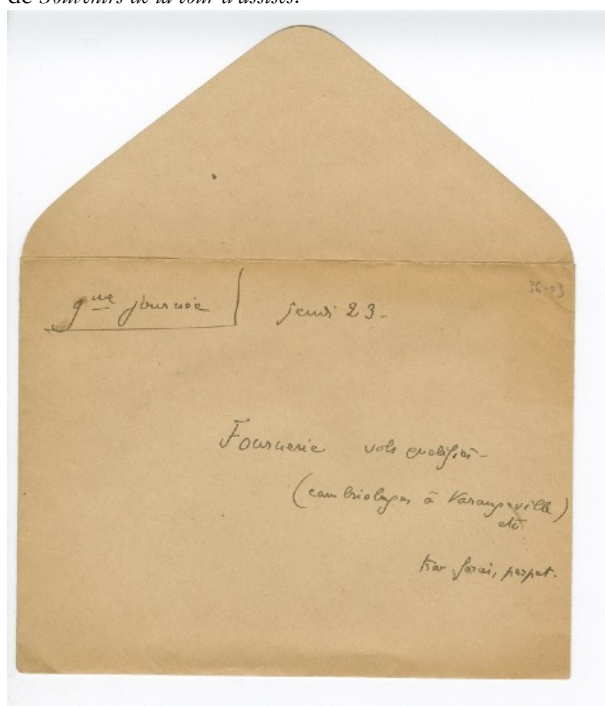 de Souvenirs de la cour d'assises.
36-03
9me journée
jeudi 23-
vols qualifiés-
(cambriolages à Varangeville)
etc
trav. forcés, perpet.